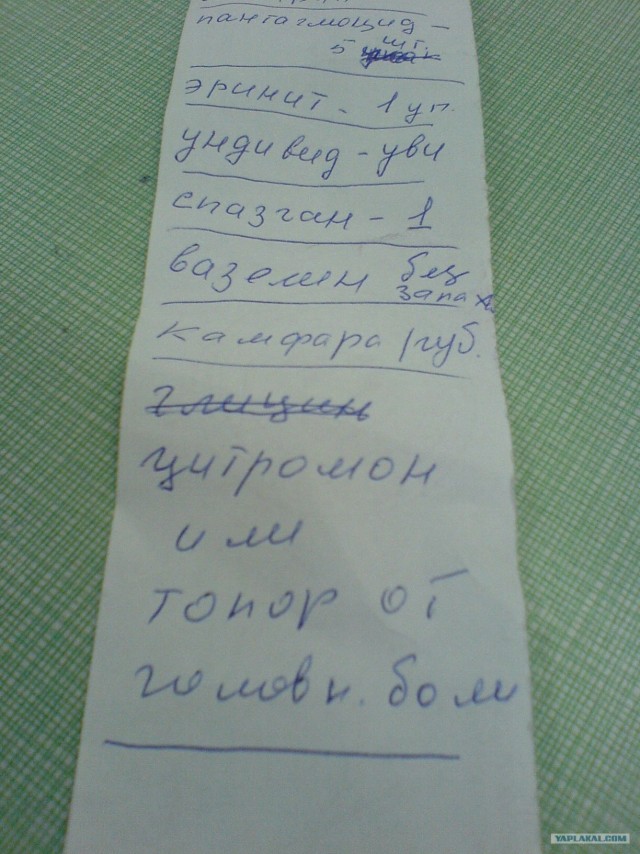 пантагмоцид -
5 шт.
эринит - 1 уп.
ундивид - уви
спазган - 1
вазелин без
запаха
камфара 1 губ.
глицин
цитромон
или
топор от
головн. боли
YAPLAKAL.COM